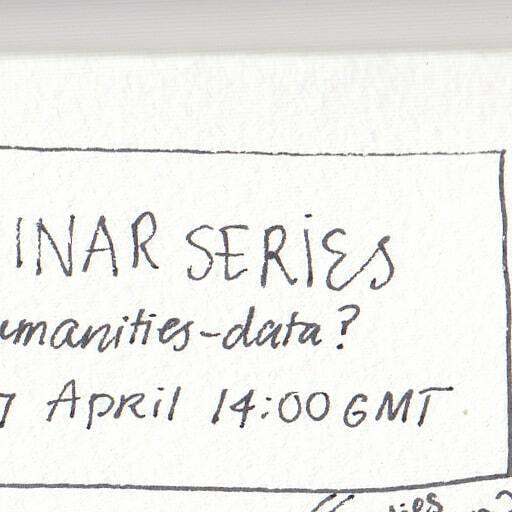 INAR SERIES
umanities-data?
7 April 14:00 GMT